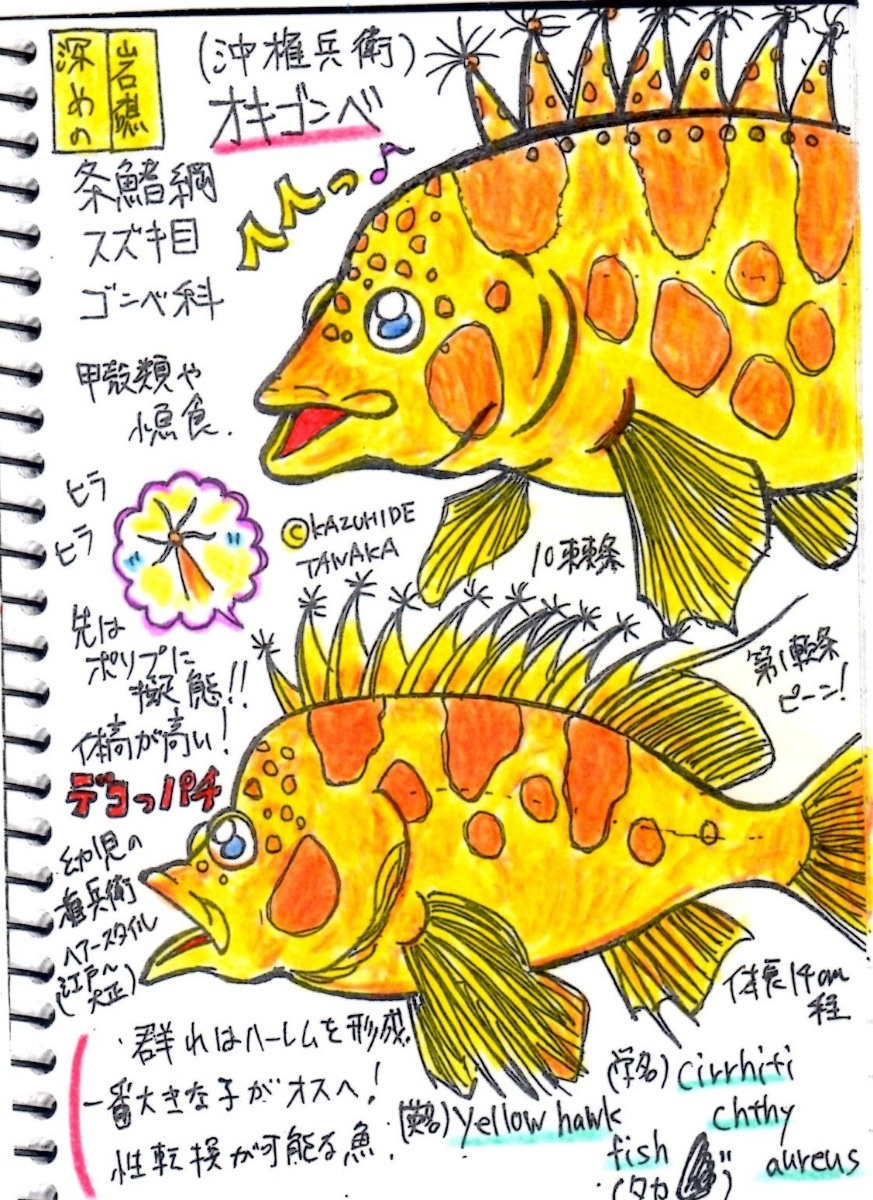 岩礁
深めの
(沖権兵衛)
オキゴンベ
へへっ♪
条鰭綱
スズキ目
ゴンベ科
甲殻類や
小魚食.
ヒラ
ヒラ
©KAZUHIDE
TANAKA
10棘条
先は
ポリプに
擬態!!
第1軟条
ピーン!
体高が高い!
デコっパチ
幼児の
権兵衛
ヘアースタイル
(江戸〜
大正)
体長14cm
程
・群れはハーレムを形成.
一番大きな子がオスへ!
性転換が可能な魚.
(学名) cirrhiti
chthy
aureus
(英名) yellow hawk
fish
(タカ